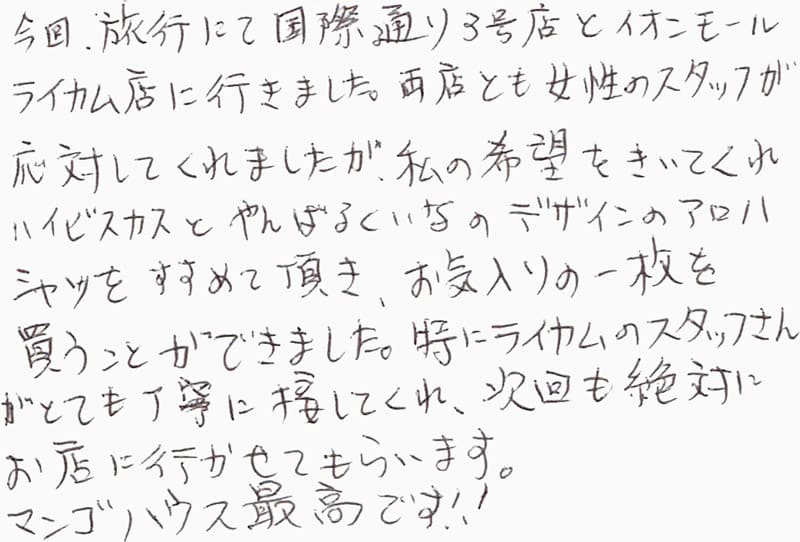 今回、旅行にて国際通り3号店とイオンモール
ライカム店に行きました。両店とも女性のスタッフが
応対してくれましたが、私の希望をきいてくれ
ハイビスカスとやんばるくいなのデザインのアロハ
シャツをすすめて頂き、お気入りの一枚を
買うことができました。特にライカムのスタッフさん
がとても丁寧に接してくれ、次回も絶対に
お店に行かせてもらいます。
マンゴハウス最高です!!